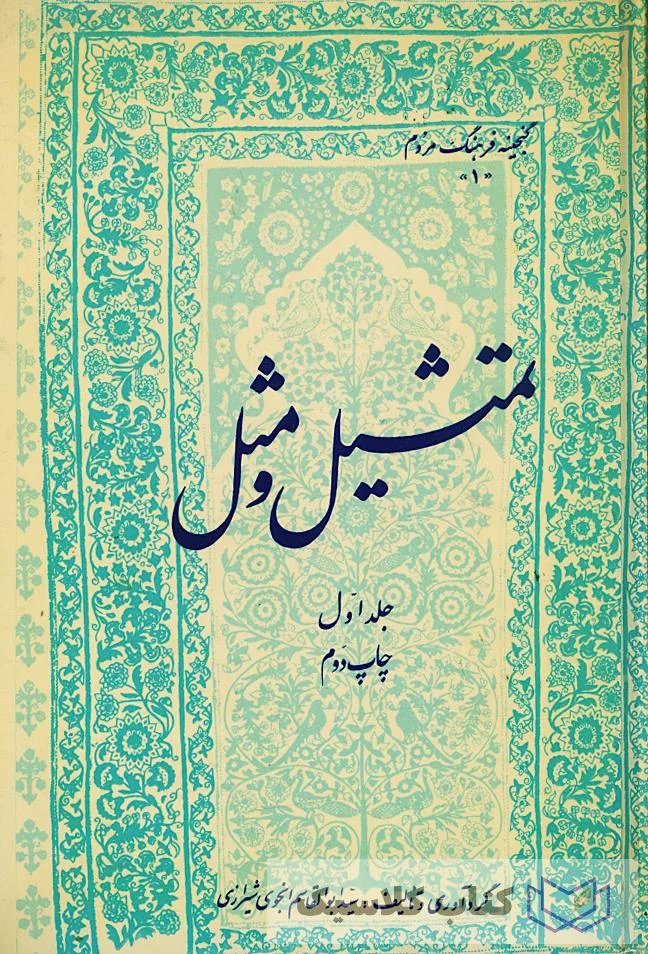 گنجینه فرهنگ مردم
«۱»
تمثیل و مثل
جلد اوّل
چاپ دوم
گردآوری و تألیف: سید ابوالقاسم انجوی شیرازی
کتاب کلاسیک